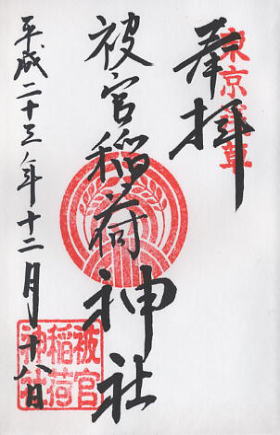 東京浅草
奉拝
被官稲荷神社
平成二十三年十二月十八日
被官
稲荷
神社